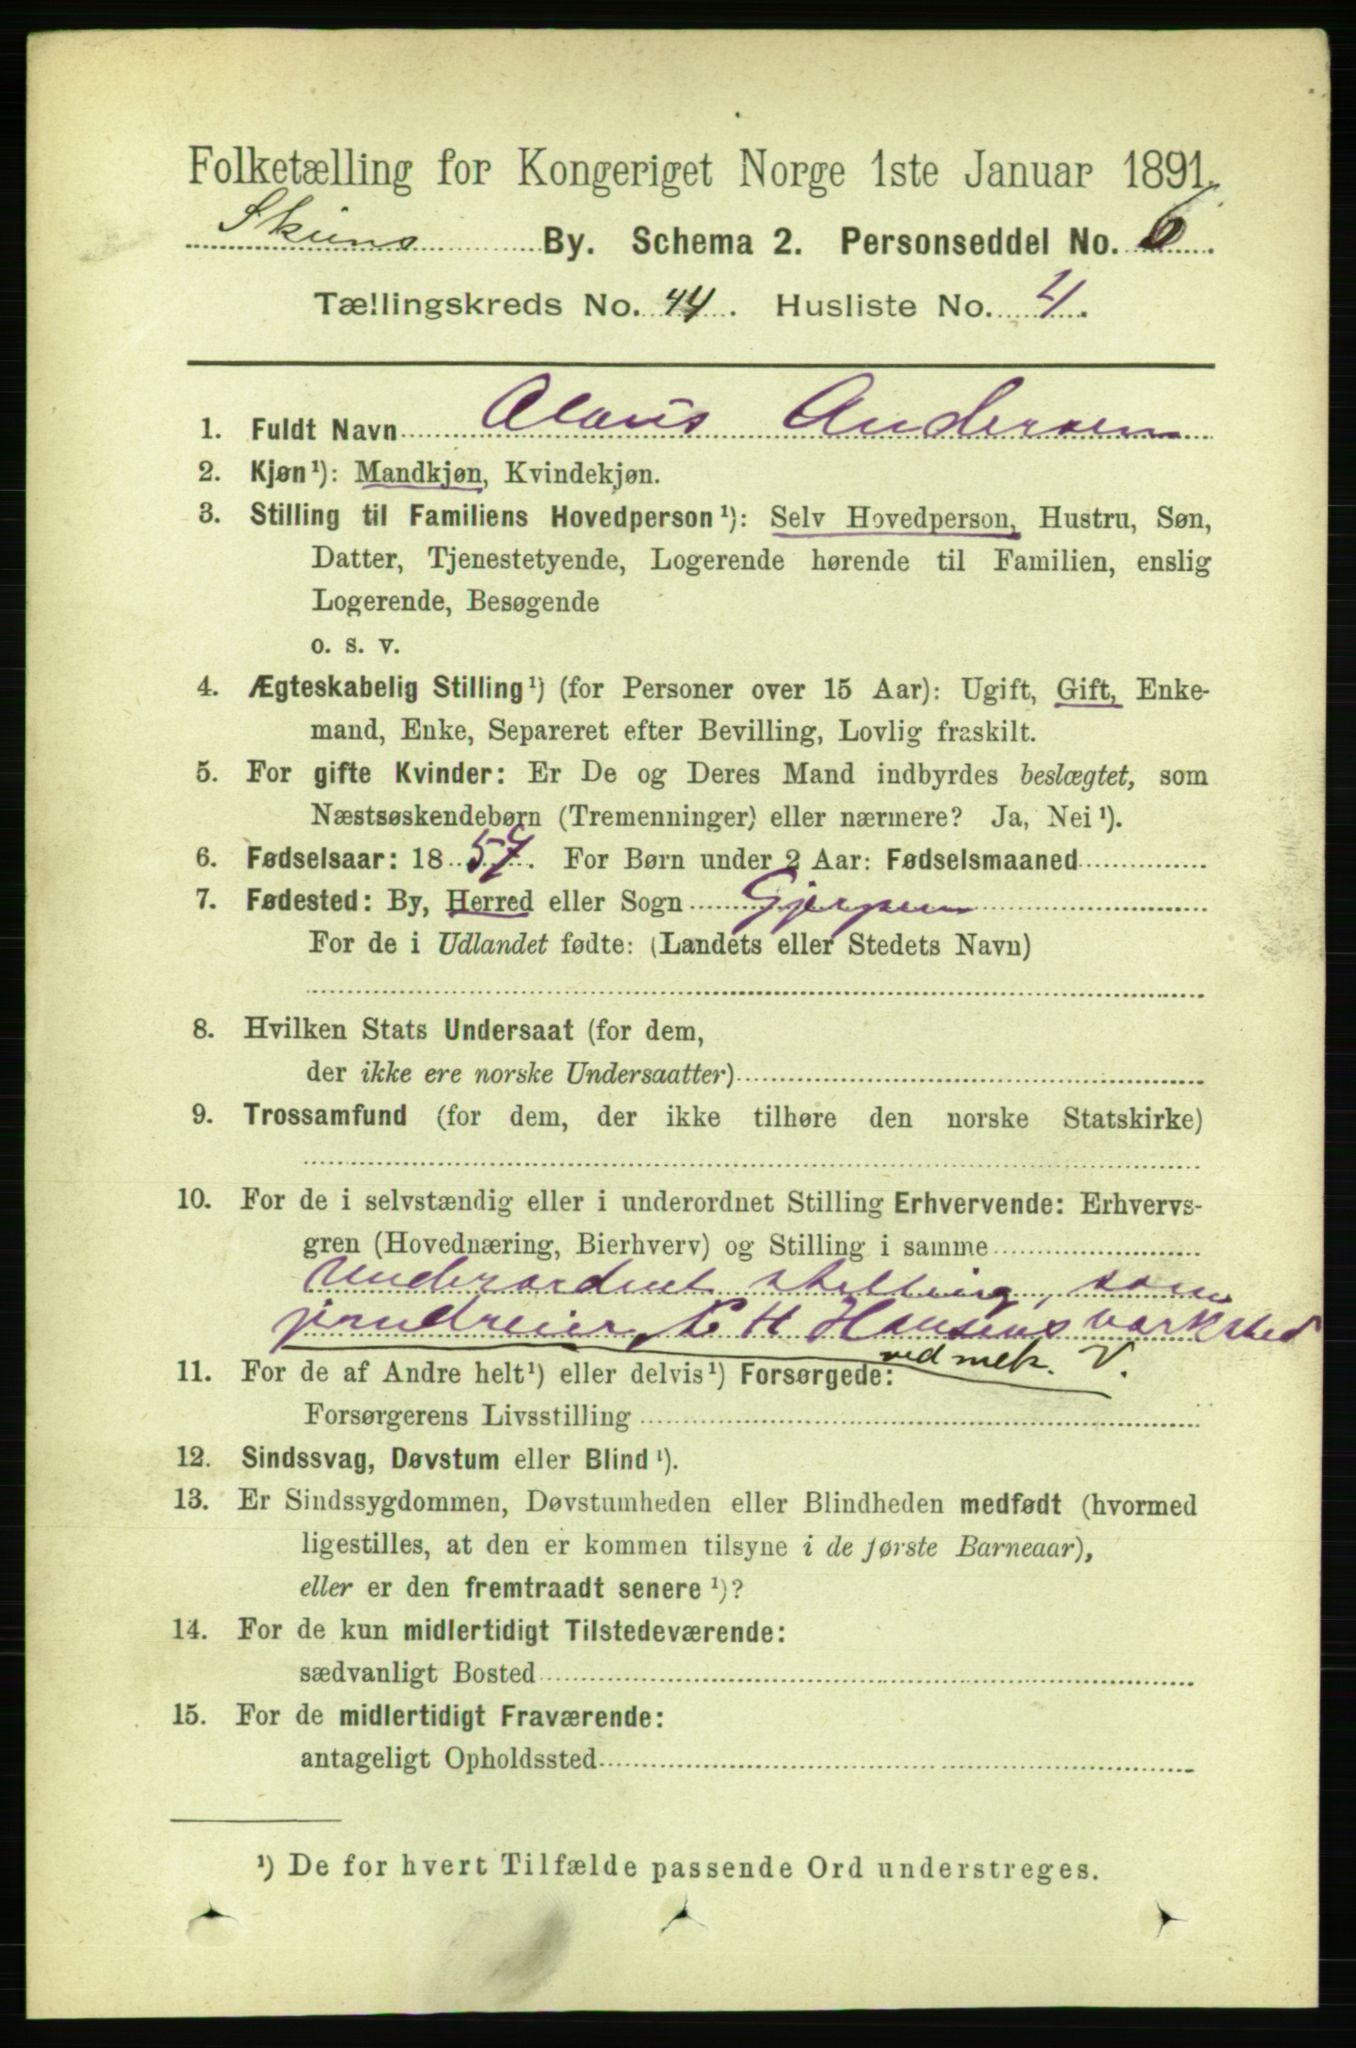 Folketælling for Kongeriget Norge 1ste Januar 1891.
Skiens By. Schema 2. Personseddel No. 6.
Tællingskreds No. 44. Husliste No. 4.
1. Fuldt Navn Claus Andersen
2. Kjøn¹): Mandkjøn, Kvindekjøn.
3. Stilling til Familiens Hovedperson¹): Selv Hovedperson, Hustru, Søn,
Datter, Tjenestetyende, Logerende hørende til Familien, enslig
Logerende, Besøgende
o. s. v.
4. Ægteskabelig Stilling¹) (for Personer over 15 Aar): Ugift, Gift, Enke-
mand, Enke, Separeret efter Bevilling, Lovlig fraskilt.
5. For gifte Kvinder: Er De og Deres Mand indbyrdes beslægtet, som
Næstsøskendebørn (Tremenninger) eller nærmere? Ja, Nei¹).
6. Fødselsaar: 1857. For Børn under 2 Aar: Fødselsmaaned
7. Fødested: By, Herred eller Sogn Gjerpen
For de i Udlandet fødte: (Landets eller Stedets Navn)
8. Hvilken Stats Undersaat (for dem,
der ikke ere norske Undersaatter)
9. Trossamfund (for dem, der ikke tilhøre den norske Statskirke)
10. For de i selvstændig eller i underordnet Stilling Erhvervende: Erhvervs-
gren (Hovednæring, Bierhverv) og Stilling i samme
Underordnet stelling, som
jerndreier, H Hansens værksted
ved mek. V.
11. For de af Andre helt¹) eller delvis¹) Forsørgede:
Forsørgerens Livsstilling
12. Sindssvag, Døvstum eller Blind¹).
13. Er Sindssygdommen, Døvstumheden eller Blindheden medfødt (hvormed
ligestilles, at den er kommen tilsyne i de første Barneaar),
eller er den fremtraadt senere¹)?
14. For de kun midlertidigt Tilstedeværende:
sædvanligt Bosted
15. For de midlertidigt Fraværende:
antageligt Opholdssted
¹) De for hvert Tilfælde passende Ord understreges.